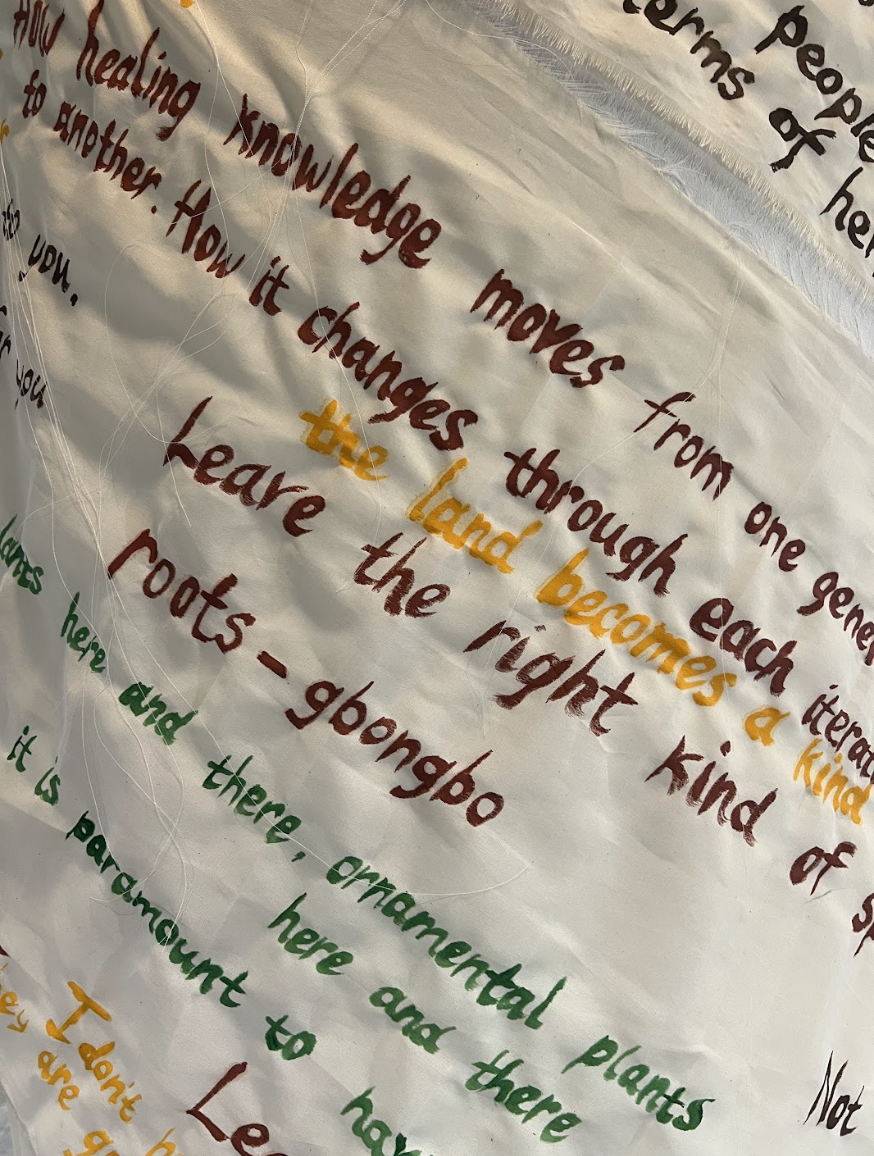 people
terms of
How healing knowledge moves from one gener
to another. How it changes through each iterat
the land becomes a kind
Leave the right kind of sp
roots - gbongbo
you.
you
lants here and there, ornamental plants
here and there
it is paramount to hav
I don't
are
Le
Not